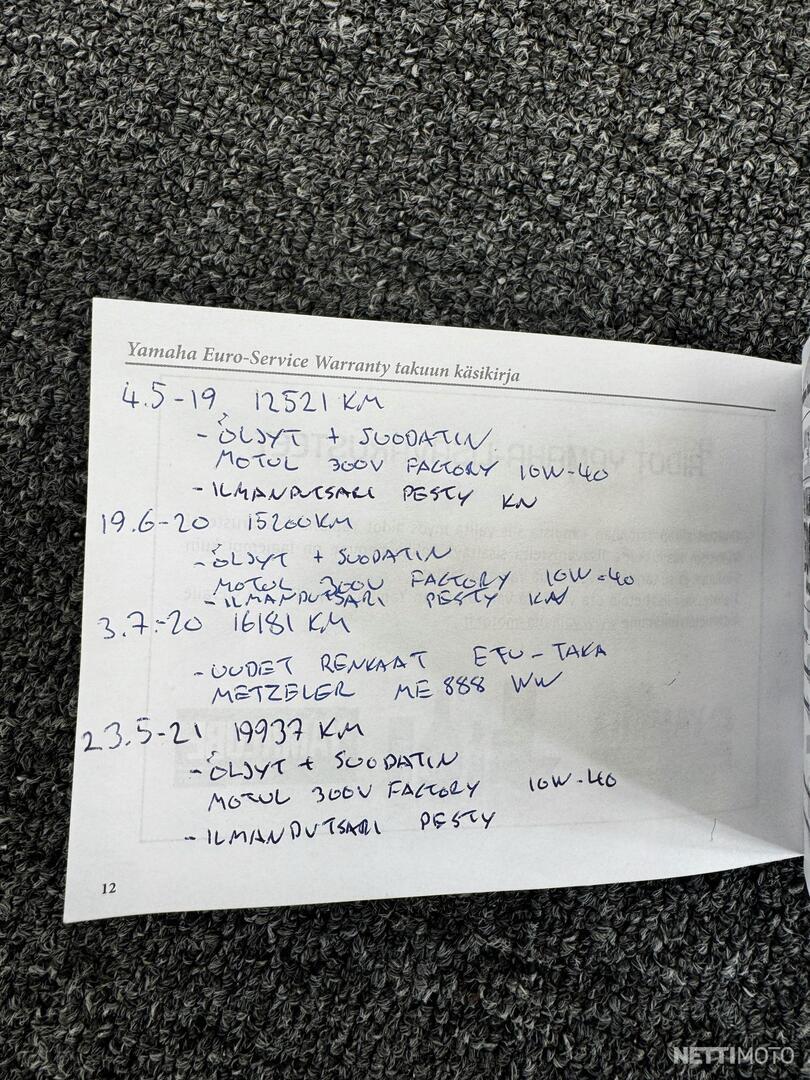 Yamaha Euro-Service Warranty takuun käsikirja
4.5-19 12521 KM
- ÖLJYT + SUODATIN
MOTUL 300V FACTORY 10W-40
- ILMANPUTSARI PESTY KN
19.6-20 15200KM
- ÖLJYT + SUODATIN
MOTUL 300V FACTORY 10W-40
- ILMANPUTSARI PESTY KN
3.7.-20 16181 KM
- UUDET RENKAAT ETU-TAKA
METZELER ME 888 WW
23.5-21 19937 KM
- ÖLJYT + SUODATIN
MOTUL 300V FACTORY 10W-40
- ILMANPUTSARI PESTY
12
NETTIMOTO